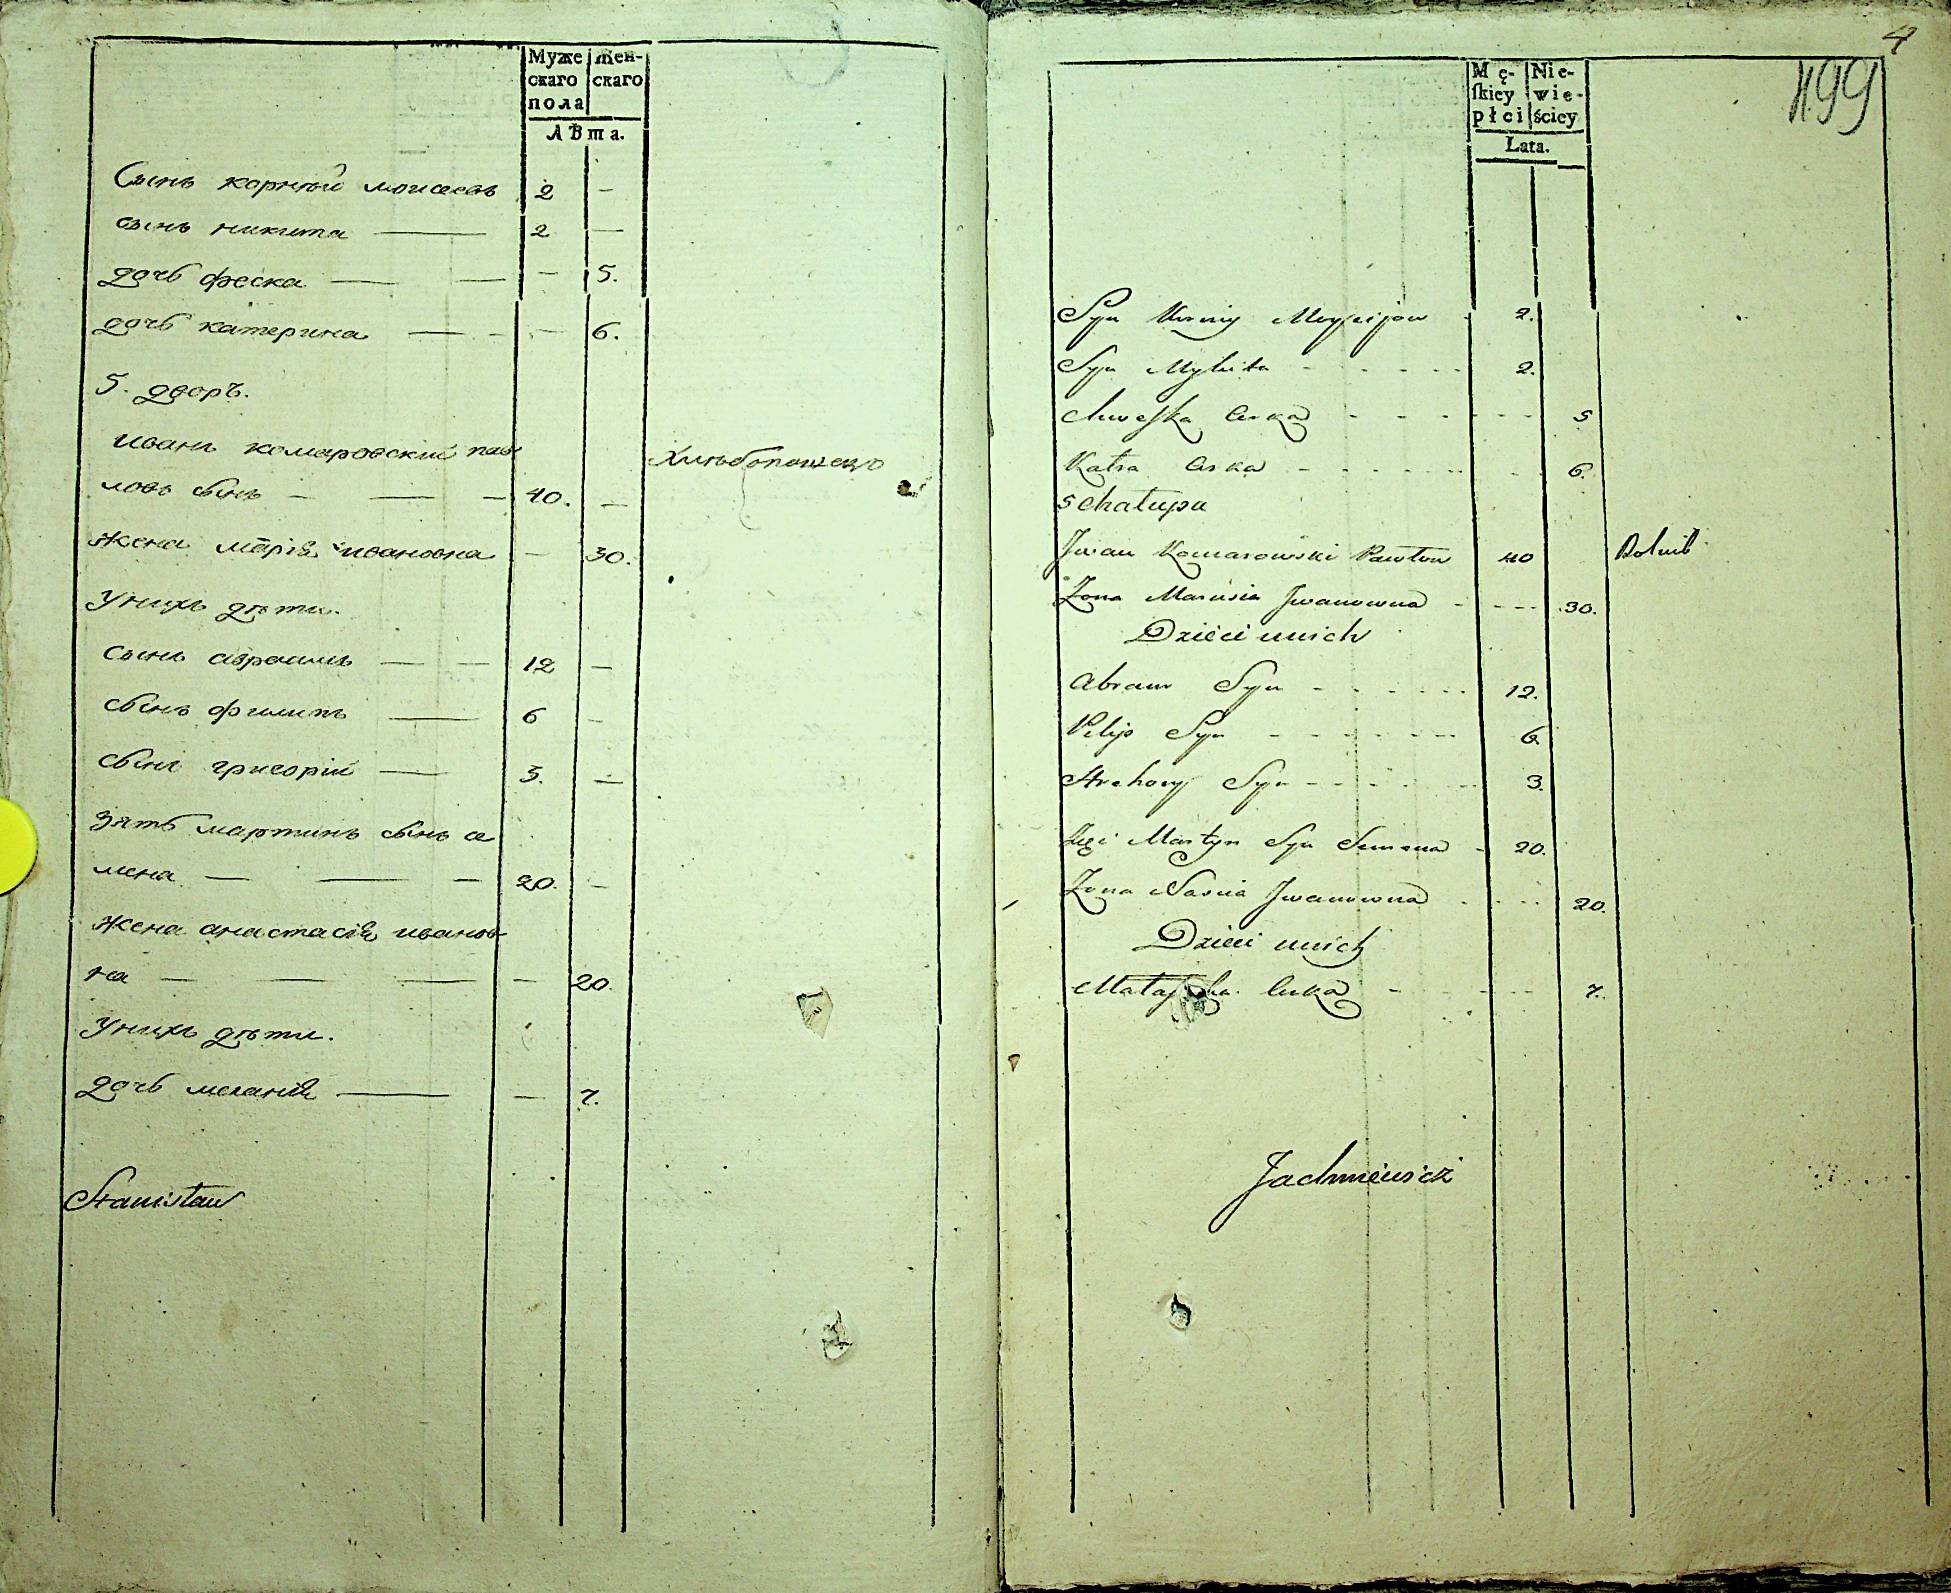 Муже
скаго
пола
Жен-
скаго
Лѣта.
Сынъ корнѣй моисеевъ 2 —
сынъ никита — 2 —
дочь феска — — — 5.
дочь катерина — — — 6.
5. дворъ.
иванъ комаровский пав
ловъ сынъ — — — 40. —
жена марія ивановна — 30.
хлѣбопашецъ
унихъ дѣти.
сынъ авраамъ — — 12 —
сынъ филипъ — 6 —
сынъ григорій — 3. —
зять мартинъ сынъ се
мена — — — 20. —
жена анастасія иванов
на — — — — 20.
унихъ дѣти.
дочь меланія — — 7.
Stanisław
4
499
Mę-
ſkiey
płci
Nie-
wie-
ściey
Lata.
Syn Kornij Moyſeijow 2.
Syn Mykita 2.
Chweſka Curka 5
Katra Curka 6.
5 Chałupa
Jwan Komarowski Pawłow 40 Rolnik
Żona Marusia Jwanowna 30.
Dzieci unich
Abram Syn 12.
Pilip Syn 6
Hrehory Syn 3.
Martyn Syn Semena 20.
Żona Nascia Jwanowna 20.
Dzieci unich
Curka 7.
Jachmiewicz